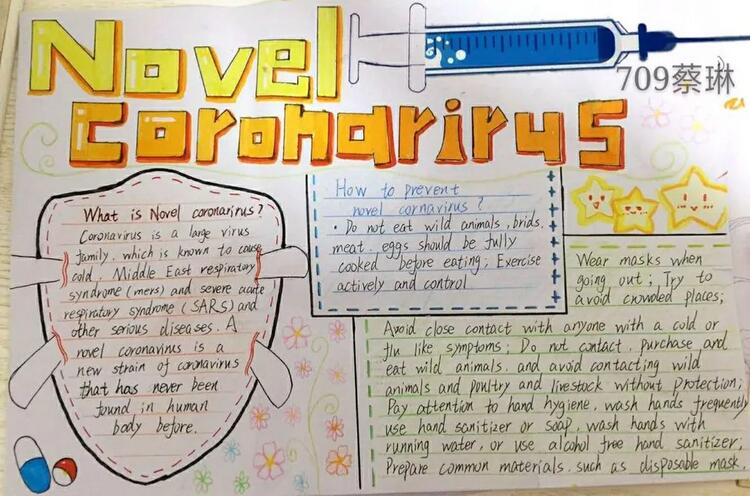 Novel
709蔡琳
Coronarirus
What is Novel coronarirus?
Coronavirus is a large virus
family, which is known to cause
cold, Middle East respiratory
syndrome (mers) and severe acute
respiratory syndrome (SARS) and
other serious diseases. A
novel coronavirus is a
new strain of coronavirus
that has never been
found in human
body before.
How to prevent
novel cornavirus?
• Do not eat wild animals, brids,
meat, eggs should be fully
cooked before eating; Exercise
actively and control
Wear masks when
going out; Try to
avoid crowded places;
Avoid close contact with anyone with a cold or
flu like symptoms; Do not contact, purchase and
eat wild animals, and avoid contacting wild
animals and poultry and livestock without protection;
Pay attention to hand hygiene, wash hands frequently
use hand sanitizer or soap, wash hands with
running water, or use alcohol free hand sanitizer;
Prepare common materials, such as disposable mask.